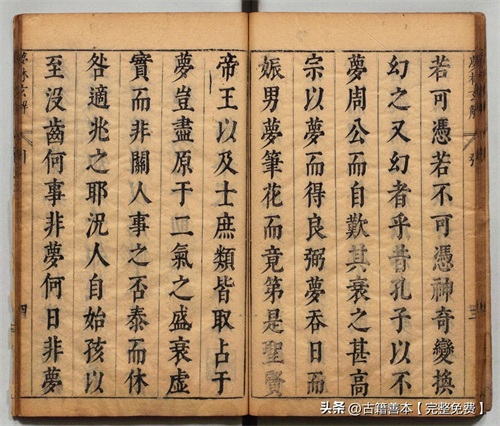 若可憑若不可憑神奇變換
幻之又幻者乎昔孔子以不
夢周公而自歎其衰之甚高
宗以夢而得良弼夢吞日而
娠男夢筆花而竟第是聖賢
帝王以及士庶類皆取占于
夢豈盡原于二氣之盛衰虛
實而非關人事之否泰而休
咎適兆之耶況人自始孩以
至沒齒何事非夢何日非夢
夢林玄解
四
頭条 @古籍善本【完整免费】